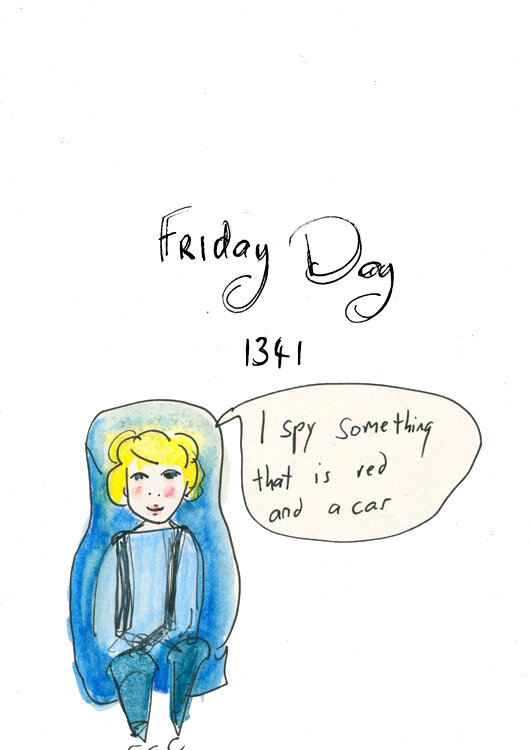 Friday Day
1341
I spy something
that is red
and a car